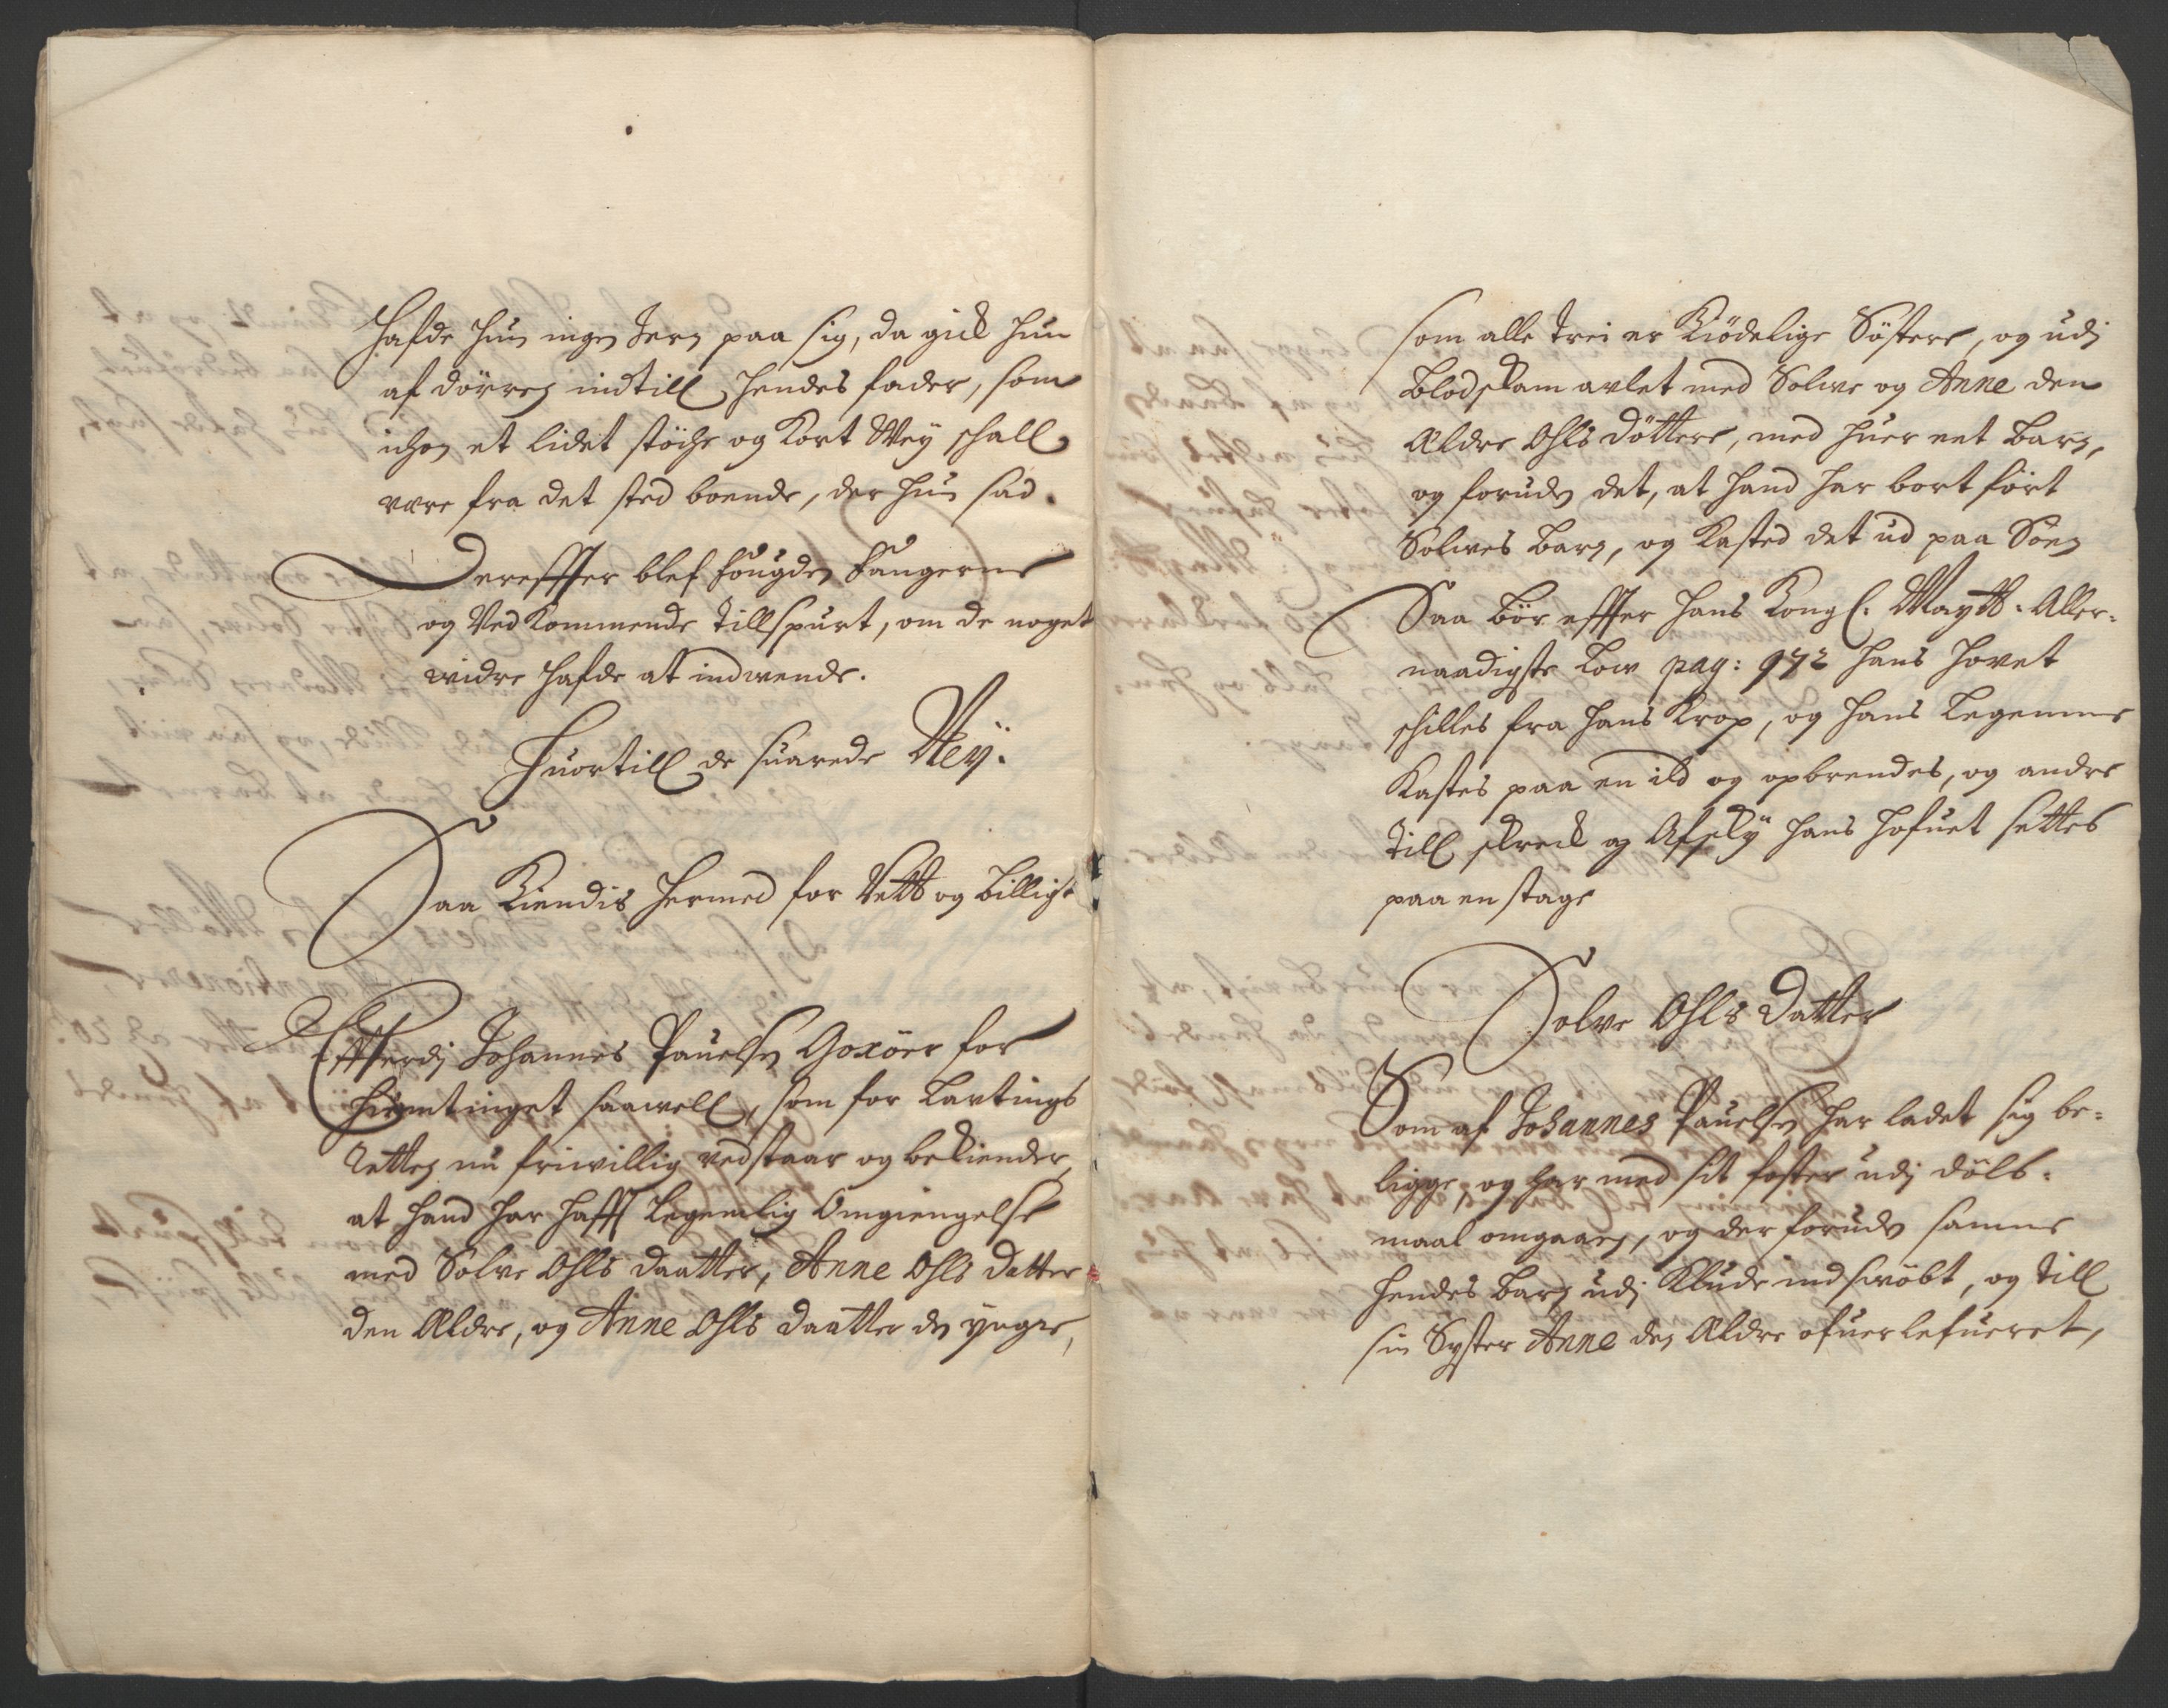 hafde hun ingen Jern paa sig, da gick hun
af dörren indtill hendes fader, som
ichon et lidet stöche og Kort Wey schall
være fra det sted boende, der hun sad.
Derefffter blef fougden fangerne
og Ved Kommende Tillspurt, om de noget
widre hafde at indwende.
Huortill de suarede Neÿ.
Saa Kiendis hermed for Rett og billigt
Effterdj Johannes Pauelsen Goxöer for
hiemtinget saawell, som for Lavtings
Retten nu friwillig vedstaar og bekiender,
at hand har hafft legemlig Omgiengelse
med Solve Ohls daatter, Anne Ohls datter
den Ældre, og Anne Ohls daatter den yngre,
som alle trei er Kiödelige Söstere, og udj
blodskam avlet med Solwe og Anne den
Ældre Ohls döttere, med huer eet barn,
og foruden det, at hand har bort fört
Solwes barn, og Kasted det ud paa Söen
Saa bör effter hans Kongl: Maytt. Aller-
naadigste Low pag: 972 hans hovet
schilles fra hans Krop, og hans Legemme
Kastes paa en ild og opbrendes, og andre
till skreck og Afskÿ hans hofuet settes
paa en stage
Solve Ohls datter
Som af Johannes Pauelsen har ladet sig be-
ligge, og har med sit foster udj döls-
maal omgaaen, og der foruden samme
hendes barn udj Klude ind swöbt, og till
sin Syster Anne den Ældre ofuerlefueret,